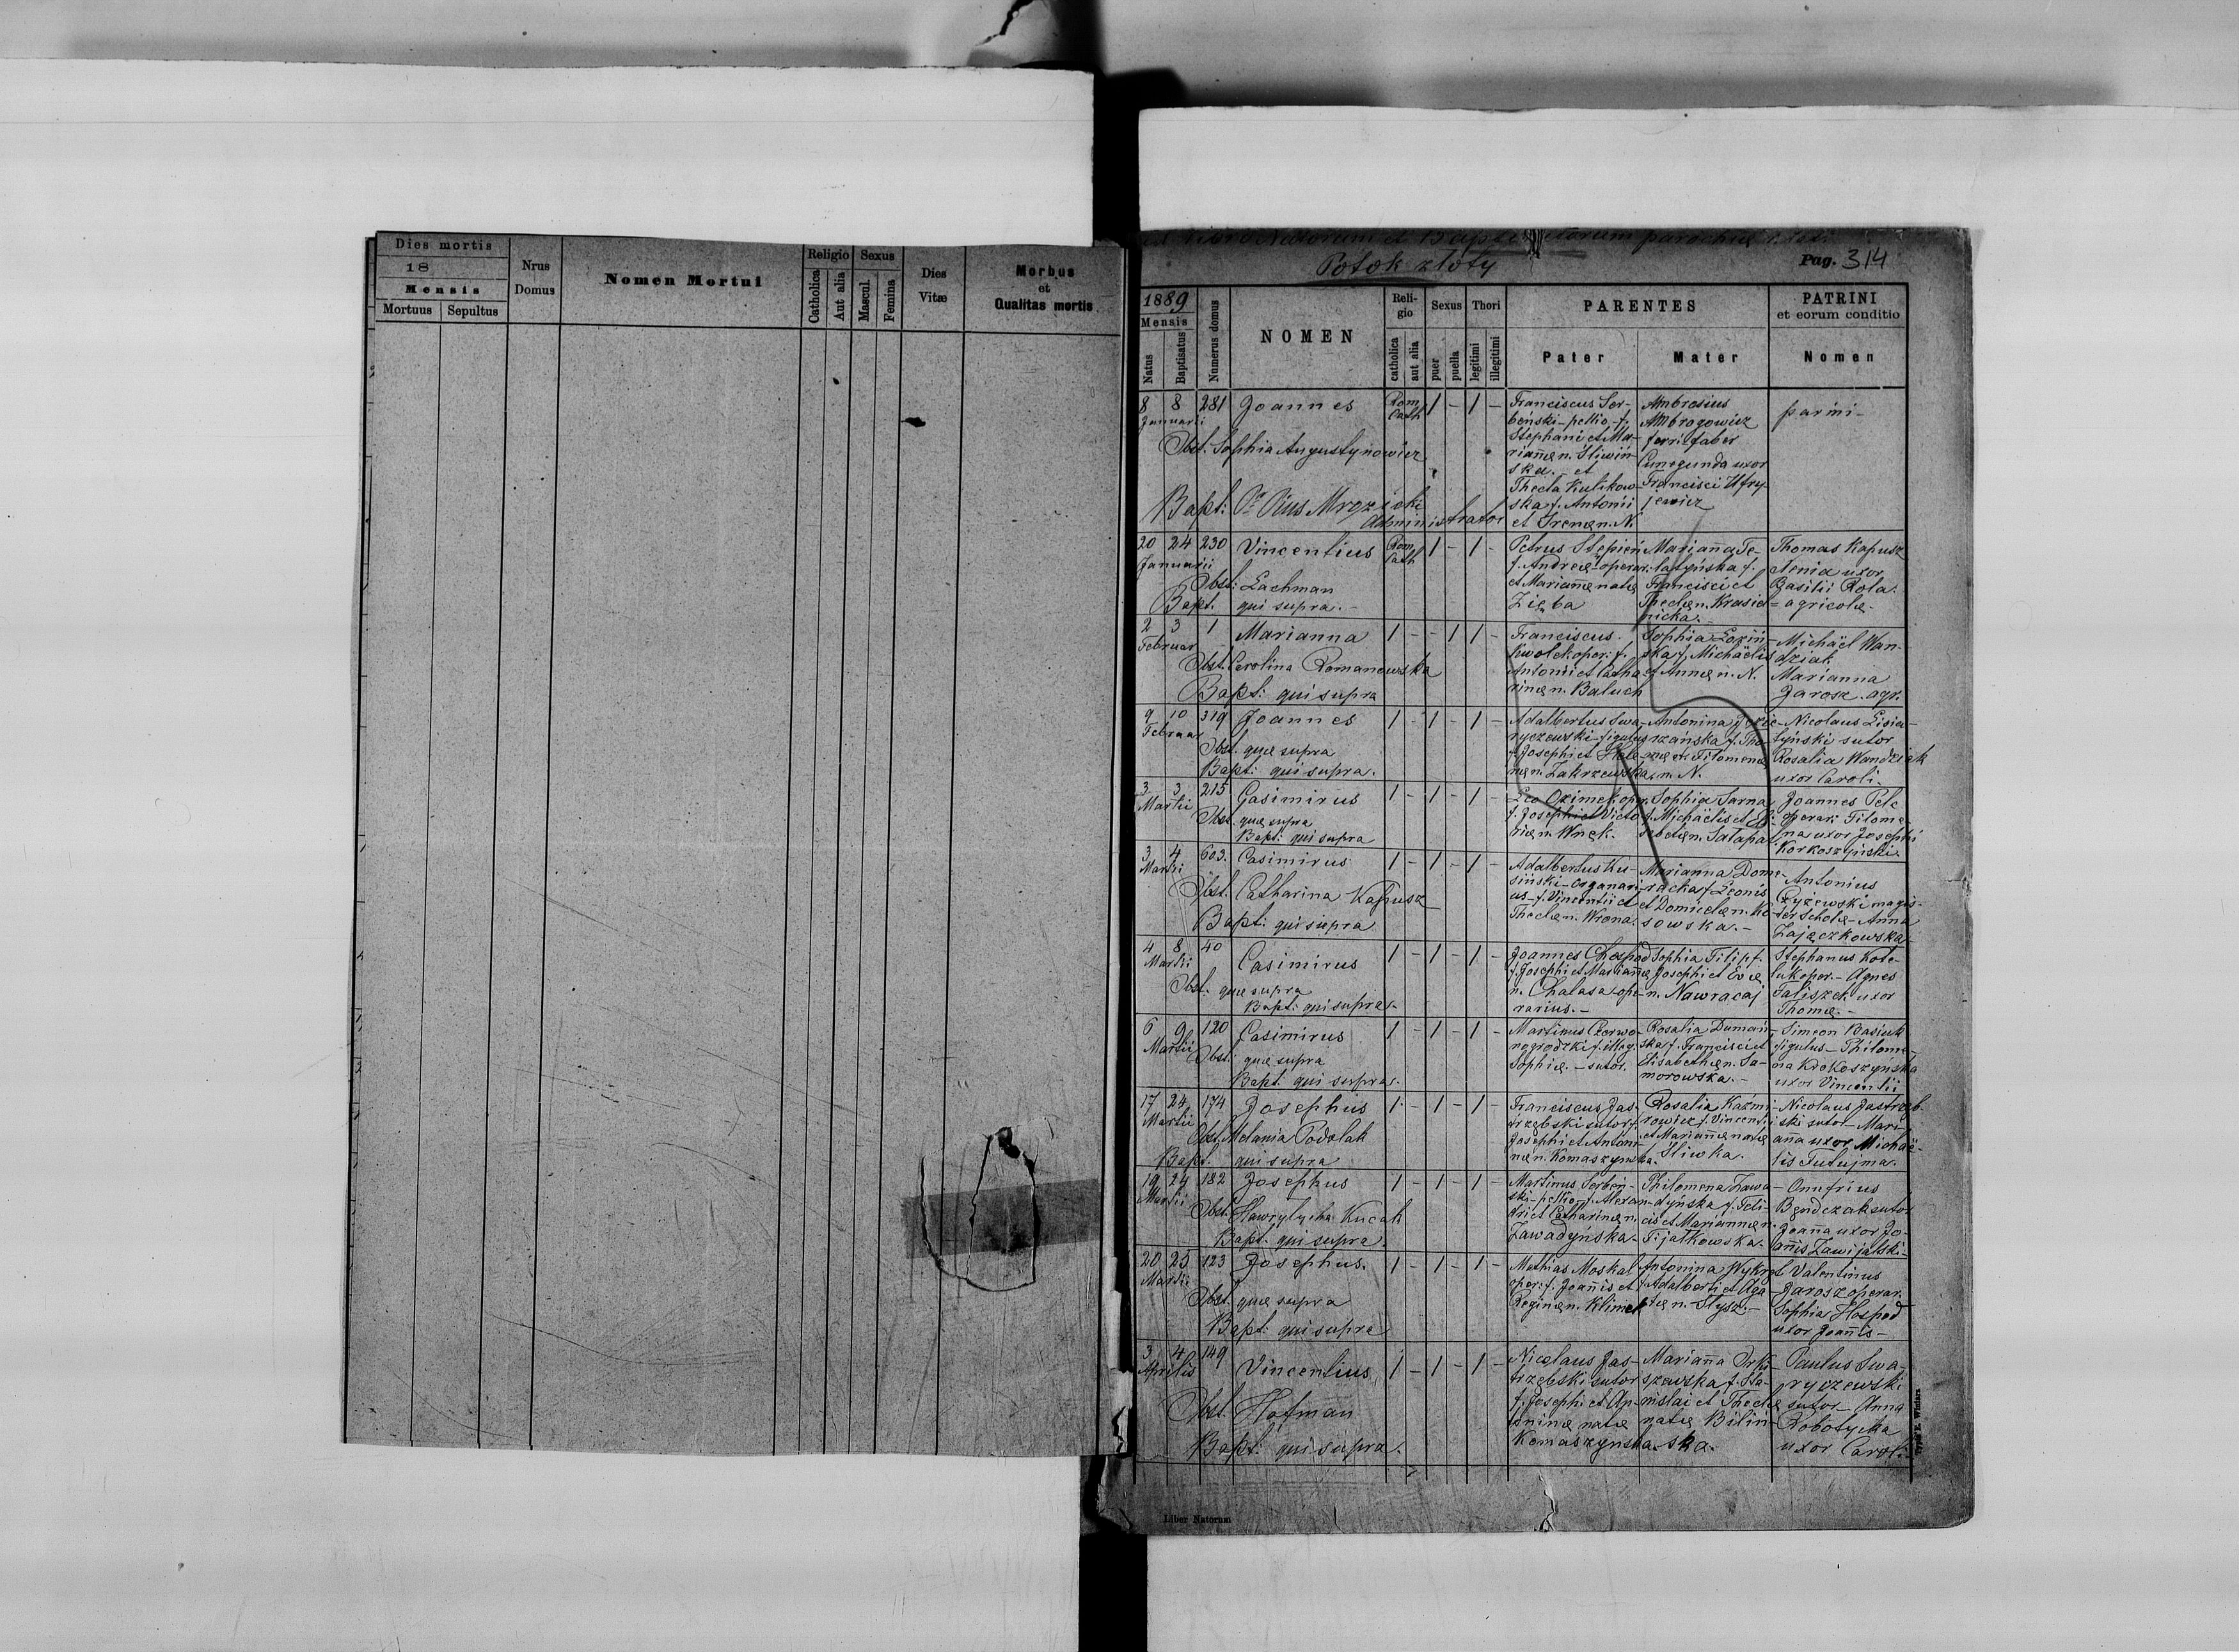 Dies mortis
18
Mensis
Mortuus Sepultus
Nrus Domus
Nomen Mortui
Religio
Catholica
Aut alia
Sexus
Mascul.
Femina
Dies Vitæ
Morbus
et
Qualitas mortis
Natorum et Baptisatorum parochiæ r. lat.
Potok złoty
Pag. 314
1889
Mensis
Natus
Baptisatus
Numerus domus
NOMEN
Reli-
gio
catholica
aut alia
Sexus
puer
puella
Thori
legitimi
illegitimi
PARENTES
Pater
Mater
PATRINI
et eorum conditio
Nomen
8 8 281 Joannes Rom. Cath. 1 - 1 -
Januarii
Obst. Sophia Augustynowicz
Bapt: Pr Pius Mrozicki
Administrator
Franciscus Ser-
beński - pellio - f.
Stephani et Ma-
riannæ n. Śliwiń-
ska. et
Thecla Kulikow-
ska f. Antonii
et Irenæ n. N.
Ambrosius
Ambrogowicz
ferri-faber
Cunegunda uxor
Francisci Ufry-
jewicz
parini -
20 24 230 Vincentius Rom. Cath 1 - 1 -
Januarii
Obst: Lachman
Bapt. qui supra. -
Petrus Stępień
f. Andreæ operar.
et Mariannæ natæ
Zięba
Marianna Te-
latyńska f.
Francisci et
Theclæ n. Krasic-
nicka. -
Thomas Kapusz
Xenia uxor
Basilii Rola
= agricolæ.
2 3 1 Marianna 1 - - 1 1 -
Februar
Obst. Carolina Romanowska
Bapt: qui supra
Franciscus
Kwolek oper. f.
Antonii et Catha-
rinæ n. Baluch
Sophia Łoziń-
ska f. Michaëlis
et Annæ n. N.
Michaël Wan-
dziak
Marianna
Jarosz. agr.
9 10 319 Joannes 1 - 1 - 1 -
Februar
Obst. quæ supra
Bapt: qui supra.
Adalbertus Swa-
ryczewski figulus
f. Josephi et Hele-
næ n. Zakrzewska
Antonina
f. Tho-
mæ et Filomenæ
n. N.
Nicolaus Lisia-
tyński sutor
Rosalia Wandziak
uxor Caroli.
3 3 215 Casimirus 1 - 1 - 1 -
Martii
Obst. quæ supra
Bapt: qui supra
Leo Ozimek oper.
f. Josephi et Victo-
riæ n. Wnęk.
Sophia Sarna
f. Michaëlis et Eli-
sabethæ n. Satapat
Joannes Pelc
operar. Filome-
na uxor Josephi
Korkoszyński.
3 4 603. Casimirus 1 - 1 - 1 -
Martii
Obst. Catharina Kapusz
Bapt: qui supra
Adalbertus Ku-
siński - organari-
us - f. Vincentii et
Theclæ n. Wrona.
Marianna Dome-
racka f. Leonis
et Domicelæ n. Ko-
sowska. -
Antonius
Czyżewski magis-
ter scholæ - Anna
Zajączkowska
4 8 40 Casimirus 1 - 1 - 1 -
Martii
Obst. quæ supra
Bapt: qui supra -
Joannes Chospod
f. Josephi et Mariannæ
n. Chalasa ope-
rarius. -
Sophia Filip f.
Josephi et Evæ
n. Nawracaj
Stephanus Kote-
luk oper. - Agnes
Faliszek uxor
Thomæ. -
6 9 120 Casimirus 1 - 1 - 1 -
Martii
Obst. quæ supra
Bapt: qui supra.
Martinus Czerwo-
nogrodzki f. illeg.
Sophiæ. - sutor.
Rosalia Dumań-
ska f. Francisci et
Elisabethæ n. Sa-
morowska. -
Simeon Basiuk
figulus - Philome-
na Krokoszyńska
uxor Vincentii
17 24 174 Josephus 1 - 1 - 1 -
Martii
Obst. Melania Podolak
Bapt. qui supra
Franciscus Jas-
trzębski sutor f.
Josephi et Antoni-
næ n. Komaszynska.
Rosalia Kaźmi-
rowicz f. Vincenti
et Mariannæ natæ
Śliwka.
Nicolaus Jastrzęb-
ski sutor - Mari-
anna uxor Michaë-
lis Tutujma.
19 24 182 Josephus 1 - 1 - 1 -
Martii
Obst. Hawrylycha Kucak
Bapt. qui supra.
Martinus Serbeń-
ski - pellio - f. Alexan-
dri et Catharinæ n.
Zawadyńska -
Philomena Zawa-
dyńska f. Feli-
cis et Mariannæ n.
Fijałkowska.
Onufrius
Bendczak sutor
Joanna uxor Jo-
annis Zawijalski -
20 25 123 Josephus. 1 - 1 - 1 -
Martii
Obst. quæ supra
Bapt: qui supra
Mathias Moskal
oper. f. Joannis et
Reginæ n. Klimek
Antonina Wykręt
f. Adalberti et Aga-
tæ n. Słysz. -
Valentinus
Jarosz operar.
Sophia Hospod
uxor Joannis -
3 4 149 Vincentius 1 - 1 - 1 -
Aprilis
Obst. Hofman
Bapt: qui supra.
Nicolaus Jas-
trzębski sutor
f. Josephi et An-
toninæ natæ
Komaszynska
Marianna Orki-
szewska f. Sta-
nislai et Theclæ
natæ Bilin-
ska.
Paulus Swa-
ryczewski
sutor - Anna
Robotycka
uxor Caroli.
Typis E. Winiarz
Liber Natorum